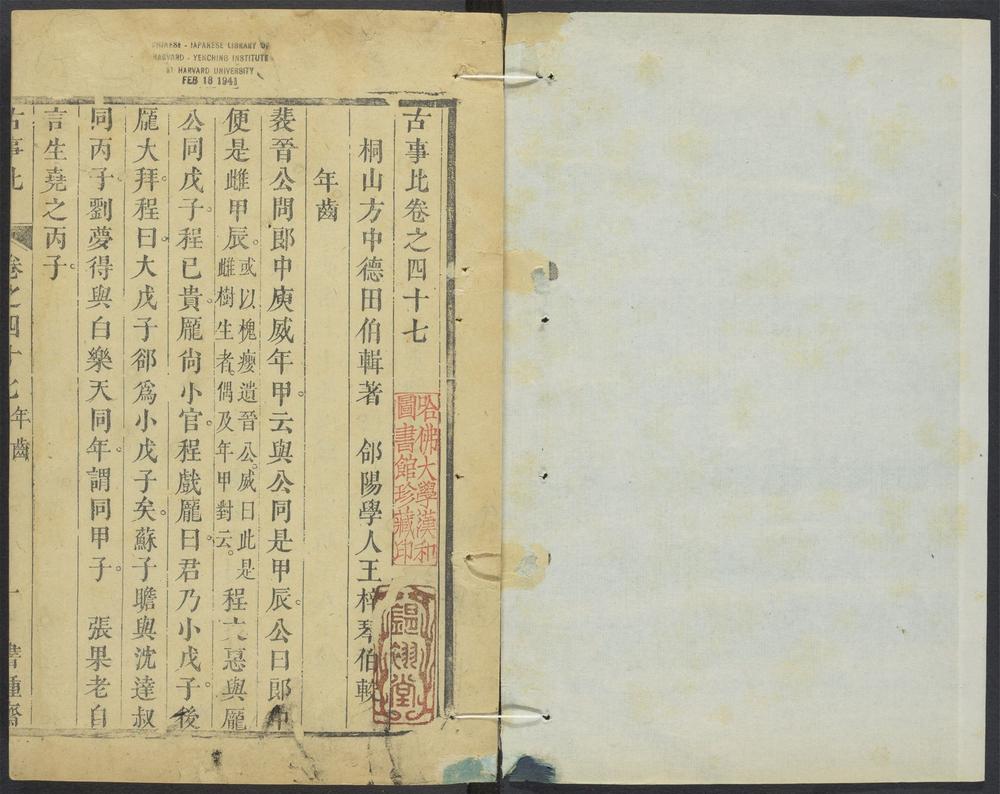 CHINESE - JAPANESE LIBRARY OF
HARVARD - YENCHING INSTITUTE
AT HARVARD UNIVERSITY
FEB 18 1941
古事比卷之四十七
桐山方中德田伯輯著　郃陽學人王梓琴伯較
年齒
裴晉公問郎中庾威年甲。云與公同是甲辰。公曰郎中
便是雌甲辰。或以槐癭遺晉公。威曰此是雌樹生者。偶及年甲對云。程文惪與龐
公同戊子。程已貴。龐尙小官。程戲龐曰。君乃小戊子。後
龐大拜。程曰。大戊子卻爲小戊子矣。蘇子瞻與沈達叔
同丙子。劉夢得與白樂天同年。謂同甲子。　張果老自
言生堯之丙子。
古事比　卷之四十七　年齒　一　書種齋
哈佛大學漢和
圖書館珍藏印